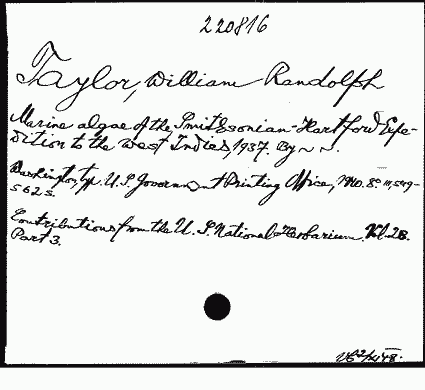 220816
Taylor, William Randolph
Marine algae of the Smithsonian-Hartford Expe-
dition to the West Indies, 1937. By ~ ~.
Washington, typ. U.S. Government Printing Office, 1940. 8º. III, 549-
562 s.
Contributions from the U.S. National Herbarium. Vol. 28.
Part 3.